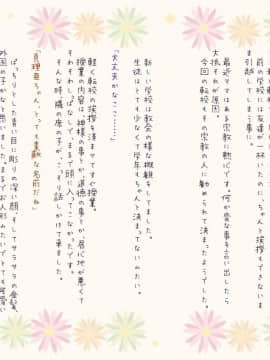 前の学校には友達が一杯いたのに…。ちゃんと挨拶もできないま
ま引越してしまう事に。
最近ママはある宗教に熱心です。何か変な事を言い出したら
大抵それが原因。
今回の転校もその宗教の人に勧められて決まったようでした。
新しい学校は教会の様な概観をしてました。
生徒はとても少なくて学年もちゃんと決まってないみたい。
「大丈夫かなここ……」
軽く転校の挨拶をすませてすぐ授業。
授業の内容は神様の事とか道徳の事とか。居心地が悪くて
そわそわしっぱなし。まるで頭に入ってなかったです。
そんな時、隣の席の子がこっそり話しかけて来ました。
「真理亜ちゃん、とっても素敵な名前だね」
ぱっちりとした青い目に彫りの深い顔、そしてサラサラの金髪、
外国の子かなと思いました。まるでお人形みたいでとても可愛い